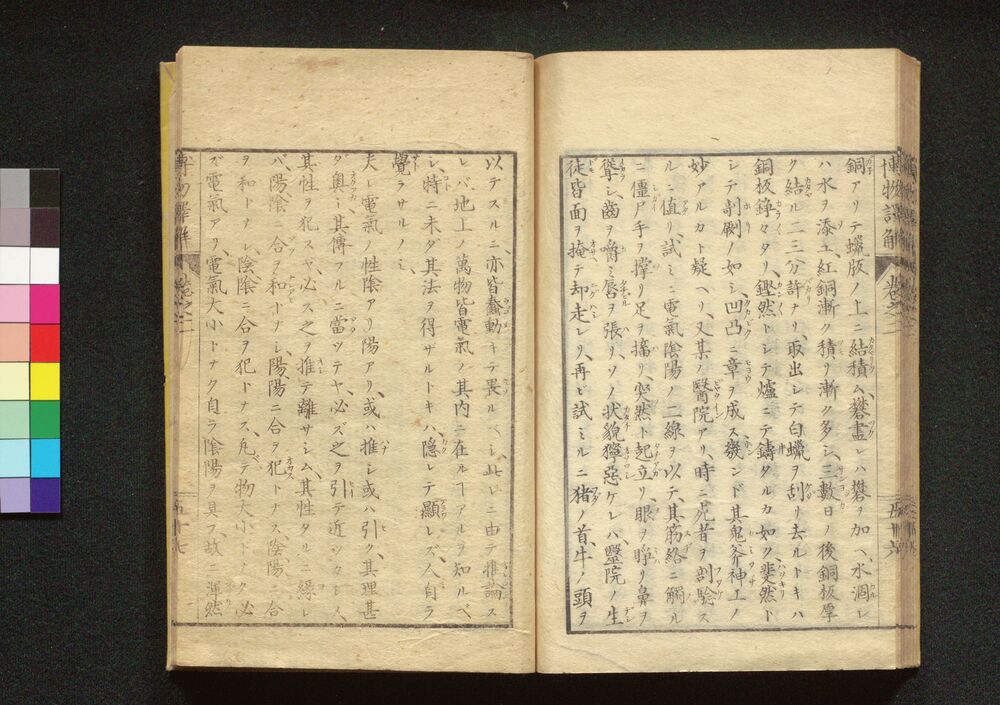 博物譯解
卷之二
銅アリテ蠟版ノ上ニ結積ム、礬盡レハ礬ヲ加ヘ、水涸レ
ハ水ヲ添ユ、紅銅漸ク積リ漸ク多シ、三數日ノ後銅板厚
ク結ル二三分許ナリ、取出シテ白蠟ヲ刮リ去ルトキハ
銅板錚々タリ、鏗然トシテ爐ニテ鑄タルカ如ク斐然ト
シテ剞劂ノ如シ凹凸ニ章ヲ成ス發ンド其鬼斧神工ノ
妙アルカト疑ヘリ、又某ノ醫院アリ、時ニ死者ヲ剖驗ス
ルニ值リ、試ミニ電氣陰陽ノ二線ヲ以テ、其筋絡ニ觸ル
ニ僵尸手ヲ撐リ足ヲ搐リ突然ト起立リ、眼ヲ睜リ鼻ヲ
聳シ、齒ヲ嚼ミ唇ヲ張リ、ソノ狀貌獰惡ケレバ醫院ノ生
徒皆面ヲ掩テ却走レリ、再ビ試ミルニ猪ノ首、牛ノ頭ヲ
以テスルニ、亦皆蠢動キテ畏ルベシ、此レニ由テ推論ス
レバ、地上ノ萬物皆電氣ノ其內ニ在ルヿアルヲ知ルベ
シ、特ニ未ダ其法ヲ得ザルトキハ、隱レテ顯レズ、人自ラ
覺ラサルノミ、
夫レ電氣ノ性陰アリ陽アリ、或ハ推シ或ハ引ク、其理甚
ダ奧シ、其傳フルニ當ツテヤ、必ズ之ヲ引テ近ツカシメ、
其性ヲ犯スヤ、必ス之ヲ推テ離サシム、其性タルニ緣レ
バ、陽陰ニ合ヲ和トナシ、陽陽ニ合ヲ犯トナス、陰陽ニ合
ヲ和トナシ、陰陰ニ合ヲ犯トナス、凡テ物大小トナク必
ズ電氣アリ、電氣大小トナク自ラ陰陽ヲ具フ、故ニ渾然
博物譯解
卷之二
五十七